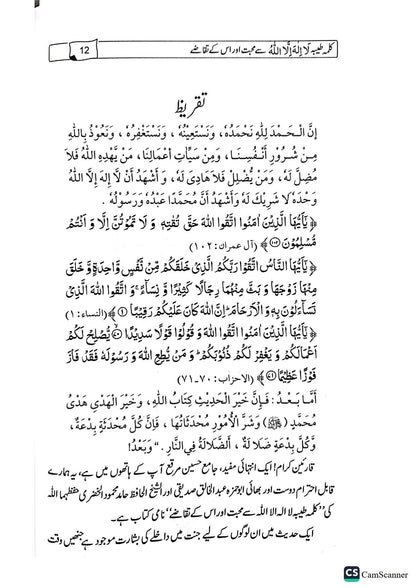 کلمہ طیبہ لَا إِلٰهَ إِلَّا اللّٰهُ سے محبت اور اس کے تقاضے 12
تقریظ
إِنَّ الْحَمْدَ لِلّٰهِ نَحْمَدُهُ، وَنَسْتَعِيْنُهُ، وَنَسْتَغْفِرُهُ، وَنَعُوْذُ بِاللّٰهِ
مِنْ شُرُوْرِ أَنْفُسِنَا، وَمِنْ سَيِّاٰتِ أَعْمَالِنَا، مَنْ يَّهْدِهِ اللّٰهُ فَلَا
مُضِلَّ لَهُ، وَمَنْ يُّضْلِلْ فَلَا هَادِيَ لَهُ، وَأَشْهَدُ أَنْ لَّا إِلٰهَ إِلَّا اللّٰهُ
وَحْدَهُ لَا شَرِيْكَ لَهُ وَأَشْهَدُ أَنَّ مُحَمَّدًا عَبْدُهُ وَرَسُوْلُهُ.
﴿يٰۤاَيُّهَا الَّذِيْنَ اٰمَنُوا اتَّقُوا اللّٰهَ حَقَّ تُقٰتِهٖ وَلَا تَمُوْتُنَّ اِلَّا وَاَنْتُمْ
مُّسْلِمُوْنَ ۝۱۰۲﴾ (آل عمران: ۱۰۲)
﴿يٰۤاَيُّهَا النَّاسُ اتَّقُوْا رَبَّكُمُ الَّذِيْ خَلَقَكُمْ مِّنْ نَّفْسٍ وَّاحِدَةٍ وَّخَلَقَ
مِنْهَا زَوْجَهَا وَبَثَّ مِنْهُمَا رِجَالًا كَثِيْرًا وَّنِسَآءً ۚ وَاتَّقُوا اللّٰهَ الَّذِيْ
تَسَآءَلُوْنَ بِهٖ وَالْاَرْحَامَ ؕ اِنَّ اللّٰهَ كَانَ عَلَيْكُمْ رَقِيْبًا ۝۱﴾ (النساء: ۱)
﴿يٰۤاَيُّهَا الَّذِيْنَ اٰمَنُوا اتَّقُوا اللّٰهَ وَقُوْلُوْا قَوْلًا سَدِيْدًا ۝۷۰ يُّصْلِحْ لَكُمْ
اَعْمَالَكُمْ وَيَغْفِرْ لَكُمْ ذُنُوْبَكُمْ ؕ وَمَنْ يُّطِعِ اللّٰهَ وَرَسُوْلَهٗ فَقَدْ فَازَ
فَوْزًا عَظِيْمًا ۝۷۱﴾ (الاحزاب: ۷۰-۷۱)
أَمَّا بَعْدُ: فَإِنَّ خَيْرَ الْحَدِيْثِ كِتَابُ اللّٰهِ، وَخَيْرَ الْهَدْيِ هَدْيُ
مُحَمَّدٍ (ﷺ) وَشَرَّ الْأُمُوْرِ مُحْدَثَاتُهَا، فَإِنَّ كُلَّ مُحْدَثَةٍ بِدْعَةٌ،
وَكُلَّ بِدْعَةٍ ضَلَالَةٌ، الضَّلَالَةُ فِي النَّارِ. "وَبَعْدُ!
قارئین کرام! ایک انتہائی مفید، جامع حسین مرقع آپ کے ہاتھوں میں ہے، یہ ہمارے
قابل احترام دوست اور بھائی ابوحمزہ عبدالخالق صدیقی اور الشیخ الحافظ حامد محمود الخضری حفظهما اللہ
کی "کلمہ طیبہ لا الہ الا اللہ سے محبت اور اس کے تقاضے" نامی کتاب ہے۔
ایک حدیث میں ان لوگوں کے لیے جنت میں داخلے کی بشارت موجود ہے جنھیں وقت
CS CamScanner